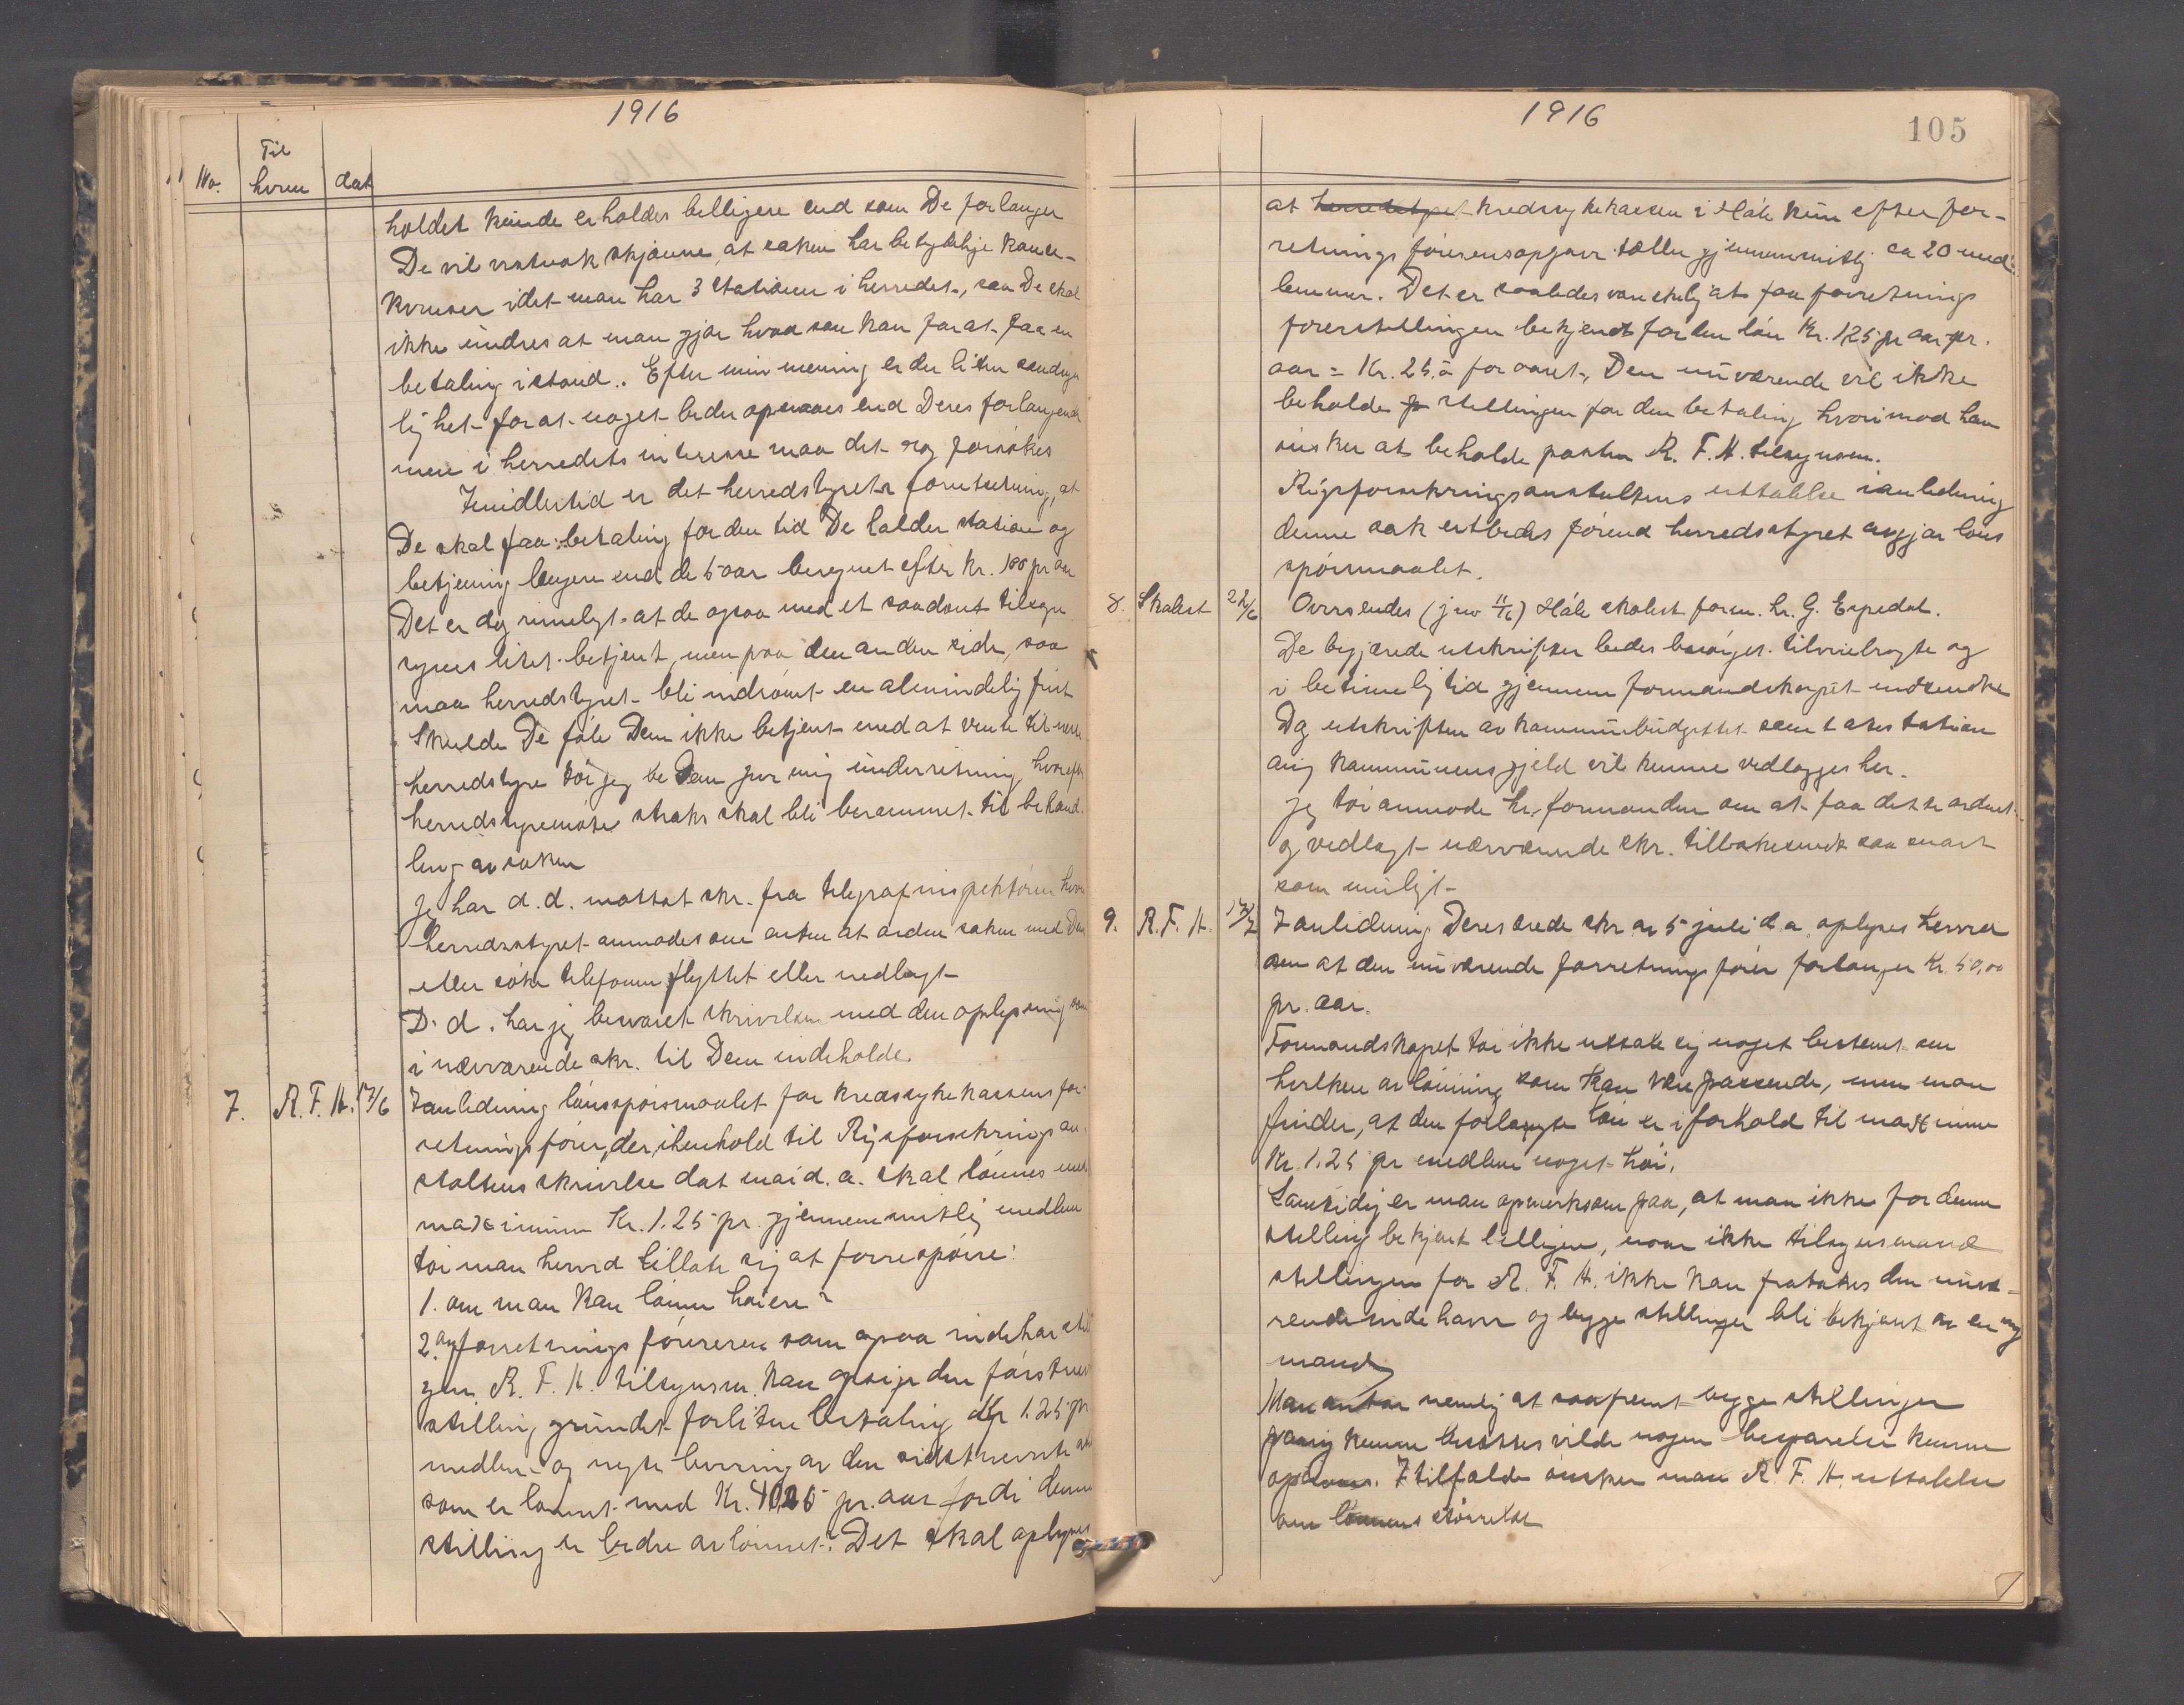 1916
No. Til hvem dat
holdet kunde erholdes billigere end som De forlanger
De vil vistnok skjønne, at saken har betydelige konse-
kvenser idet man har 3 stationer i herredet, saa De skal
ikke undres at man gjør hvad som kan for at faa en
betaling istand. Efter min mening er der liten sandsyn
lighet for at noget beder opnaaes end Deres forlangende
men i herredets interesse maa det dog forsøkes
Imidlertid er det herredstyrets forutsetning, at
De skal faa betaling for den tid De holder station og
betjening længere end de 5 aar beregnet efter kr. 100 pr aar
Det er dog rimeligt at de ogsaa med et saadant tilsagn
synes litet betjent, men paa den anden side, saa
maa herredstyret bli indrømt en almindelig frist
Skulde De føle Dem ikke betjent med at vente til neste
herredstyre tør jeg be Dem gi mig underretning, hvorefter
herredstyremøte straks skal bli berammet til behand-
ling av saken
Jeg har d. d. mottat skr. fra telegrafinspektøren hvor
herredsstyret anmodes om enten at ordne saken med Dem
eller søke telefonen flyttet eller nedlagt
D. d. har jeg besvaret skrivelsen med den oplysning som
i nærværende skr. til Dem indeholde.
7. R. F. A. 17/6 I anledning lønsspørsmaalet for kredssykekassens for-
retningsfører, der i henhold til Rigsforsikringsan-
staltens skrivelse dat mai d. a. skal lønnes med
maximum Kr. 1.25 pr. gjennemsnitlig medlem
tør man herved tillate sig at forrespørre:
1. om man kan lønne høiere?
2. om forretningsføreren som ogsaa indehar stil
gen R. F. A. tilsynsm. kan opsige den førstnævnt
stilling grundet forliten betaling Kr 1.25 pr
medlem og negte levering av den sidstnevnte
som er lønnet med Kr. pr. aar fordi denne
stilling er bedre avlønnet? Det skal oplyses
1916
105
at herredstyret kredssykekassen i Håle kun efter for-
retningsførerens opgave tæller gjennemsnitlig ca 20 med
lemmer. Det er saaledes vanskelig at faa forretnings
førerstillingen bekjendt for den løn Kr. 1,25 pr aar pr.
aar = Kr. 25,- for aaret. Den nuværende vil ikke
beholde stillingen for den betaling hvorimod han
ønsker at beholde posten R. F. A. tilsynsm.
Rigsforsikringsanstaltens uttalelse i anledning
denne sak utbedes førend herredsstyret avgjør løns
spørsmaalet.
8. Skolest 22/6 Oversendes (jnr 11/16) Håle skolest form. hr. G. Espedal.
De begjærede utskrifter bedes besørget tilveiebragte og
i betimelig tid gjennem formandskapet indsendte
Dg utskriften av kommunebudgettet samt attestation
ang kommunens gjeld vil kunne vedlægges her.
Jeg tør anmode hr. formanden om at faa dette ordnet
og vedlagt nærværende skr. tilbakesendt saa snart
som muligt
9. R. F. A. 17/7 I anledning Deres ærede skr av 5 juli d.a. oplyses herved
om at den nuværende forretningsfører forlanger Kr. 50,00
pr. aar.
Formandskapet tør ikke uttale sig noget bestemt om
hvilken avlønning som kan være passende, men man
finder, at den forlangte løn er i forhold til maximum
Kr. 1.25 pr medlem noget høi.
Samtidig er man opmerksom paa, at man ikke for denne
stilling bekjent billigere, naar ikke tilsynsmand
stillingen for R. F. A. ikke kan fratakes den nuvæ-
rende indehaver og begge stillinger bli bekjent av en ny
mand
Man antar nemlig at saafremt begge stillinger
paany kunne besættes vilde nogen besparelse kunne
opnaaes. I tilfælde ønsker man R. F. A. uttalelse
om lønnens størrelse